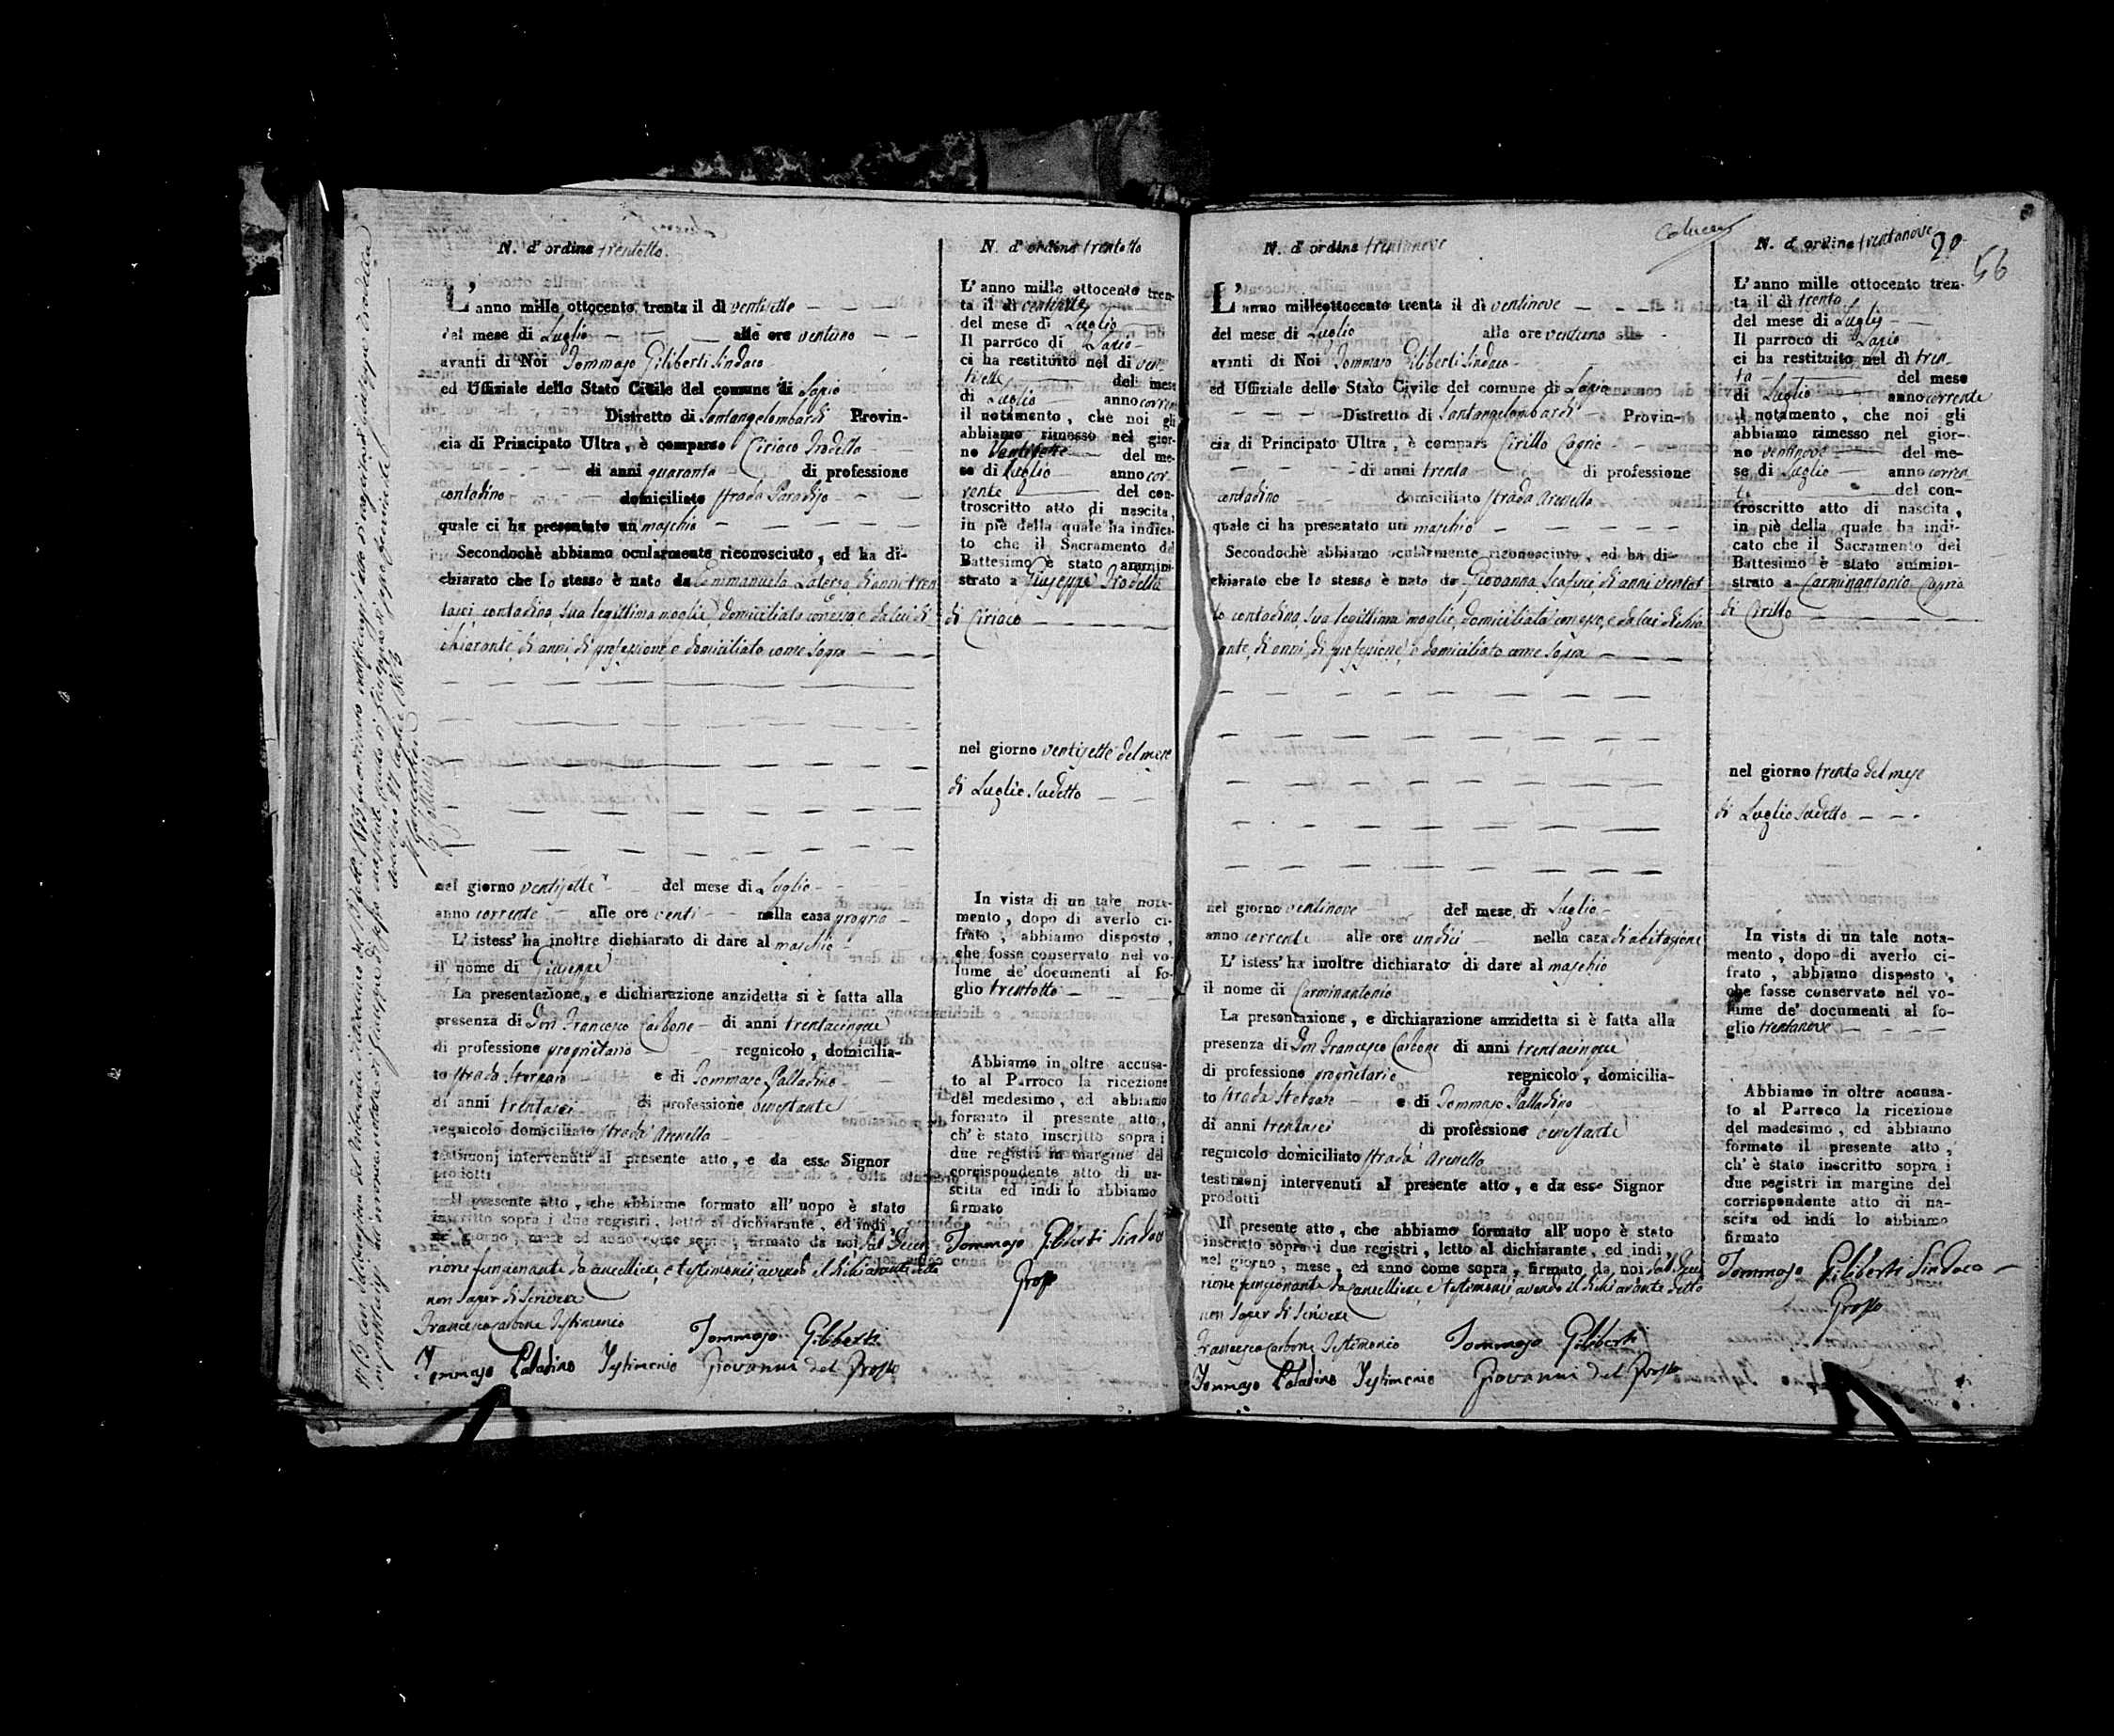 N. d'ordine trentotto.
L'anno mille ottocento trenta il dì ventisette
del mese di Luglio alle ore ventuno
avanti di Noi Tommaso Giliberti Sindaco
ed Uffiziale dello Stato Civile del comune di Lapio
Distretto di Santangelombardi Provin-
cia di Principato Ultra, è comparso Ciriaco Trodella
di anni quaranta di professione
contadino domiciliato strada Paradiso
quale ci ha presentato un maschio
Secondochè abbiamo ocularmente riconosciuto, ed ha di-
chiarato che lo stesso è nato da Emmanuela di anni tren
tasei, contadina, sua legittima moglie, domiciliata con esso, e da lui di
chiarante, di anni, di professione, e domiciliato come sopra
nel giorno ventisette del mese di Luglio
anno corrente alle ore venti nella casa propria
L'istess' ha inoltre dichiarato di dare al maschio
il nome di Giuseppe
La presentazione, e dichiarazione anzidetta si è fatta alla
presenza di Don Francesco Carbone di anni trentacinque
di professione proprietario regnicolo, domicilia-
to strada e di Tommaso Palladino
di anni trentasei di professione benestante
regnicolo domiciliato strada Arenella
testimonj intervenuti al presente atto, e da esso Signor
prodotti
Il presente atto, che abbiamo formato all'uopo è stato
inscritto sopra i due registri, letto al dichiarante, ed indi
nel giorno, mese ed anno come sopra, firmato da noi, dal Decu
rione funzionante da Cancelliere, e testimonii, avendo il dichiarante detto
non saper di scrivere
Francesco Carbone Testimonio Tommaso Giliberti
Tommaso Paladino Testimonio Giovanni del Grosso
N. d'ordine trentotto
L'anno mille ottocento tren-
ta il dì ventisette
del mese di Luglio
Il parroco di Lapio
ci ha restituito nel dì ven
tisette del mese
di Luglio anno corren
il notamento, che noi gli
abbiamo rimesso nel gior-
no ventisette del me-
se di Luglio anno cor
rente del con-
troscritto atto di nascita,
in piè della quale ha indica-
to che il Sacramento del
Battesimo è stato ammini-
strato a Giuseppe Trodella
di Ciriaco
nel giorno ventisette del mese
di Luglio sudetto
In vista di un tale nota-
mento, dopo di averlo ci-
frato, abbiamo disposto,
che fosse conservato nel vo-
lume de' documenti al fo-
glio trentotto
Abbiamo in oltre accusa-
to al Parroco la ricezione
del medesimo, ed abbiamo
formato il presente atto,
ch'è stato inscritto sopra i
due registri in margine del
corrispondente atto di na-
scita ed indi lo abbiamo
firmato
Tommaso Giliberti Sindaco
Grosso
N. d'ordine trentanove
L'anno milleottocento trenta il dì ventinove
del mese di Luglio alle ore ventuno
avanti di Noi Tommaso Giliberti Sindaco
ed Uffiziale dello Stato Civile del comune di Lapio
Distretto di Santangelombardi Provin-
cia di Principato Ultra, è compars Cirillo Caprio
di anni trenta di professione
contadino domiciliato strada Arenella
quale ci ha presentato un maschio
Secondochè abbiamo ocularmente riconosciuto, ed ha di-
chiarato che lo stesso è nato da Giovanna di anni ventot
to contadina, sua legittima moglie, domiciliata con esso, e da lui dichia
rante, di anni, di professione, e domiciliato come sopra
nel giorno ventinove del mese di Luglio
anno corrente alle ore undici nella casa di abitazione
L'istess' ha inoltre dichiarato di dare al maschio
il nome di Carminantonio
La presentazione, e dichiarazione anzidetta si è fatta alla
presenza di Don Francesco Carbone di anni trentacinque
di professione proprietario regnicolo, domicilia-
to strada e di Tommaso Palladino
di anni trentasei di professione benestante
regnicolo domiciliato strada Arenella
testimonj intervenuti al presente atto, e da esso Signor
prodotti
Il presente atto, che abbiamo formato all'uopo è stato
inscritto sopra i due registri, letto al dichiarante, ed indi
nel giorno, mese, ed anno come sopra, firmato da noi, dal Decu
rione funzionante da Cancelliere, e testimonii, avendo il dichiarante detto
non saper di scrivere
Francesco Carbone Testimonio Tommaso Giliberti
Tommaso Paladino Testimonio Giovanni del Grosso
N. d'ordine trentanove
20
56
L'anno mille ottocento tren-
ta il dì trenta
del mese di Luglio
Il parroco di Lapio
ci ha restituito nel dì tren
ta del mese
di Luglio anno corrente
il notamento, che noi gli
abbiamo rimesso nel gior-
no ventinove del me-
se di Luglio anno corren
te del con-
troscritto atto di nascita,
in piè della quale ha indi-
cato che il Sacramento del
Battesimo è stato ammini-
strato a Carminantonio Caprio
di Cirillo
nel giorno trenta del mese
di Luglio sudetto
In vista di un tale nota-
mento, dopo di averlo ci-
frato, abbiamo disposto,
che fosse conservato nel vo-
lume de' documenti al fo-
glio trentanove
Abbiamo in oltre accusa-
to al Parroco la ricezione
del medesimo, ed abbiamo
formato il presente atto,
ch'è stato inscritto sopra i
due registri in margine del
corrispondente atto di na-
scita ed indi lo abbiamo
firmato
Tommaso Giliberti Sindaco
Grosso